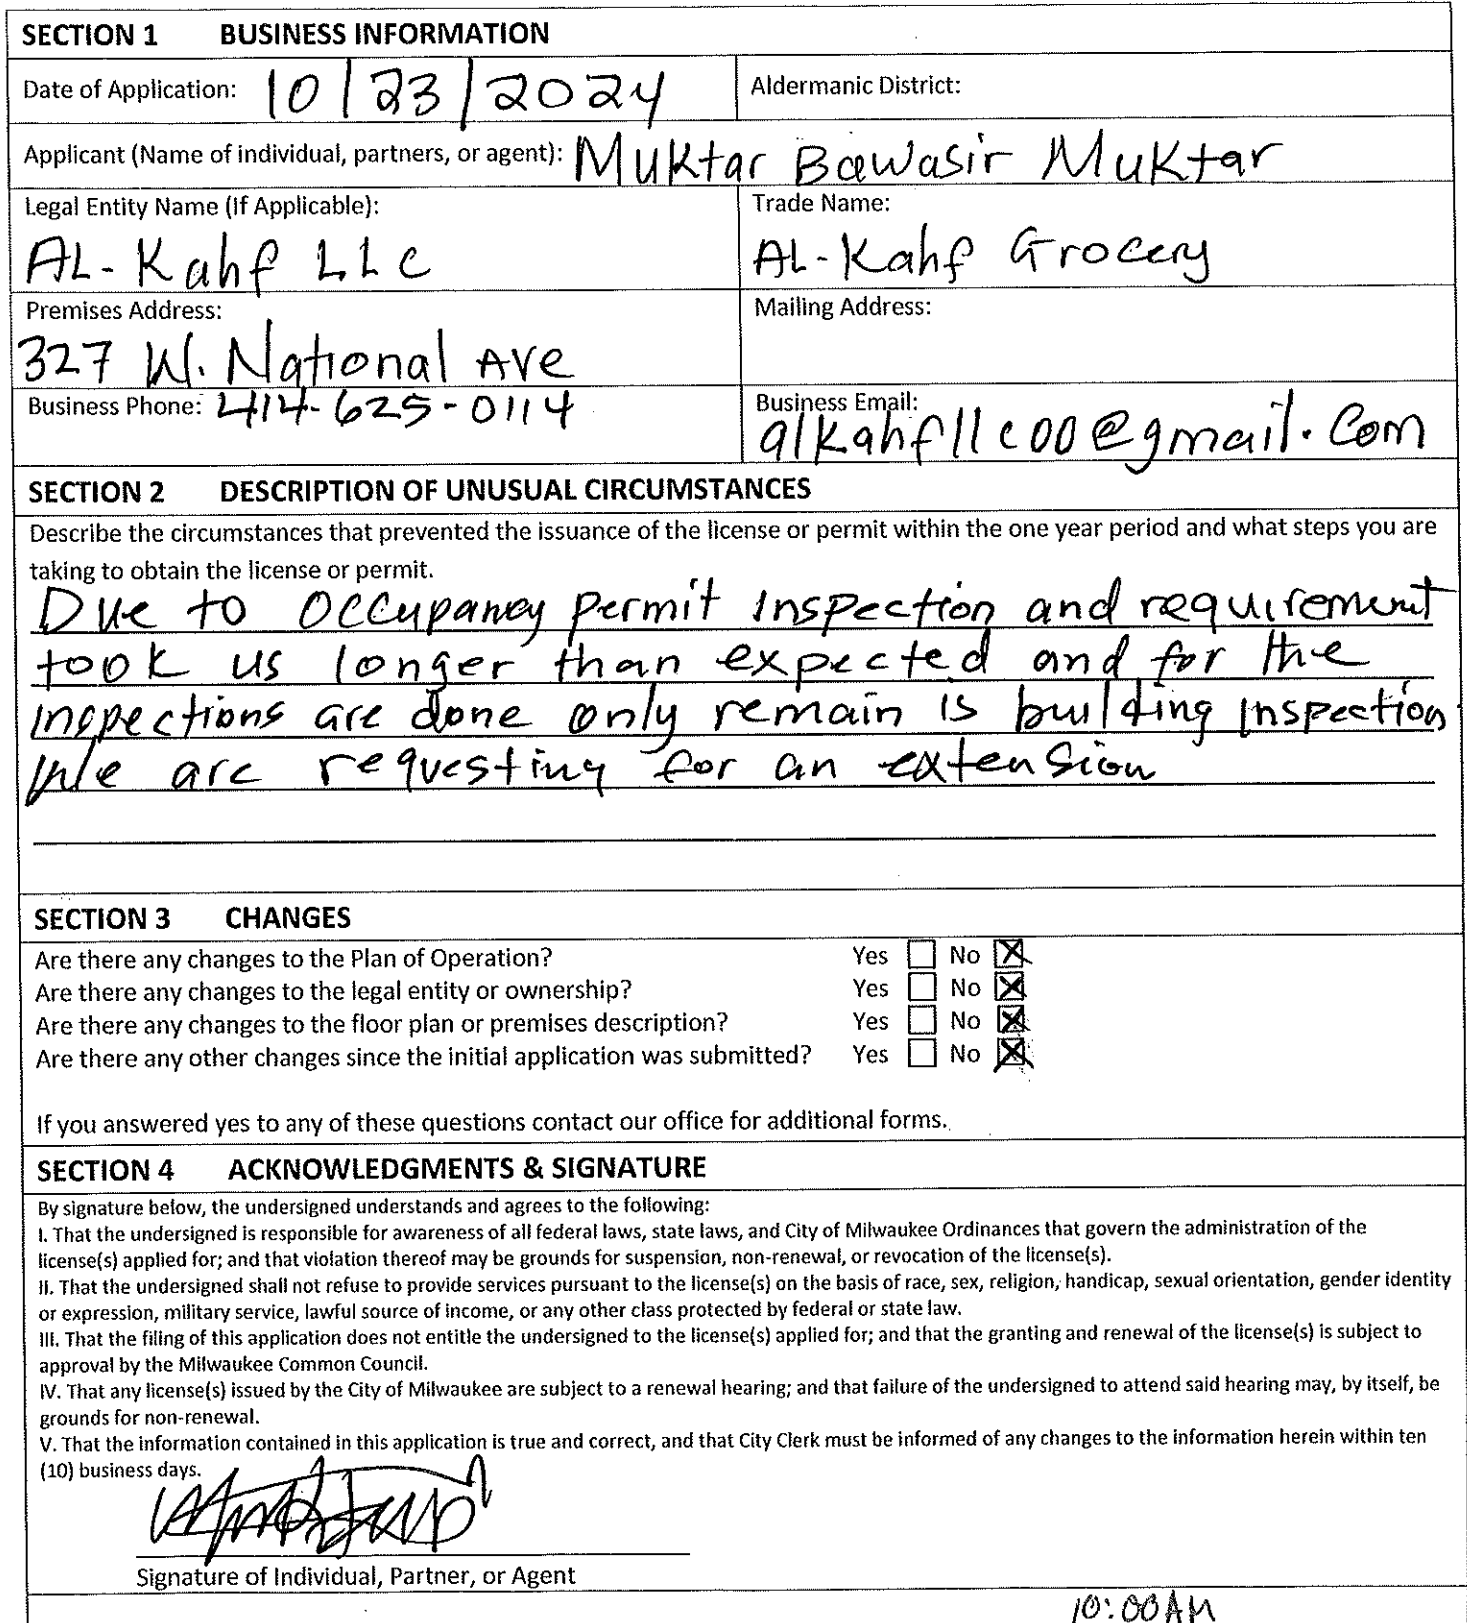 SECTION 1 BUSINESS INFORMATION
Date of Application: 10/23/2024
Aldermanic District:
Applicant (Name of individual, partners, or agent): Muktar Bawasir Muktar
Legal Entity Name (If Applicable):
AL-Kahf LLC
Trade Name:
AL-Kahf Grocery
Premises Address:
327 W. National Ave
Mailing Address:
Business Phone: 414-625-0114
Business Email:
alkahfllc00@gmail.com
SECTION 2 DESCRIPTION OF UNUSUAL CIRCUMSTANCES
Describe the circumstances that prevented the issuance of the license or permit within the one year period and what steps you are
taking to obtain the license or permit.
Due to Occupancy permit Inspection and requirement
took us longer than expected and for the
inspections are done only remain is building Inspection
We are requesting for an extension
SECTION 3 CHANGES
Are there any changes to the Plan of Operation? Yes No X
Are there any changes to the legal entity or ownership? Yes No X
Are there any changes to the floor plan or premises description? Yes No X
Are there any other changes since the initial application was submitted? Yes No X
If you answered yes to any of these questions contact our office for additional forms.
SECTION 4 ACKNOWLEDGMENTS & SIGNATURE
By signature below, the undersigned understands and agrees to the following:
I. That the undersigned is responsible for awareness of all federal laws, state laws, and City of Milwaukee Ordinances that govern the administration of the
license(s) applied for; and that violation thereof may be grounds for suspension, non-renewal, or revocation of the license(s).
II. That the undersigned shall not refuse to provide services pursuant to the license(s) on the basis of race, sex, religion, handicap, sexual orientation, gender identity
or expression, military service, lawful source of income, or any other class protected by federal or state law.
III. That the filing of this application does not entitle the undersigned to the license(s) applied for; and that the granting and renewal of the license(s) is subject to
approval by the Milwaukee Common Council.
IV. That any license(s) issued by the City of Milwaukee are subject to a renewal hearing; and that failure of the undersigned to attend said hearing may, by itself, be
grounds for non-renewal.
V. That the information contained in this application is true and correct, and that City Clerk must be informed of any changes to the information herein within ten
(10) business days.
Signature of Individual, Partner, or Agent
10:00AM